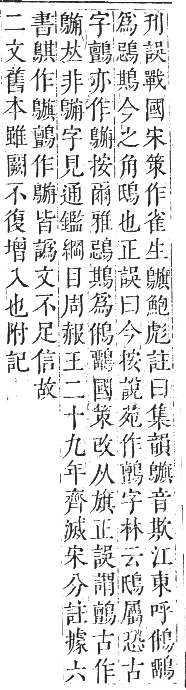 刊誤戰國宋策作雀生鮑彪註曰集韻音欺江東呼鵂鶹
爲鵋䳢今之角鴟也正誤曰今按說苑作鸇字林云鴟屬恐古
字鸇亦作按爾雅鵋䳢爲鵂鶹國策改从旗正誤謂鸇古作
𠀤非字見通鑑綱目周赧王二十九年齊滅宋分註據六
書䳢作鸇作皆譌文不足信故
二文舊本雖闕不復增入也附記